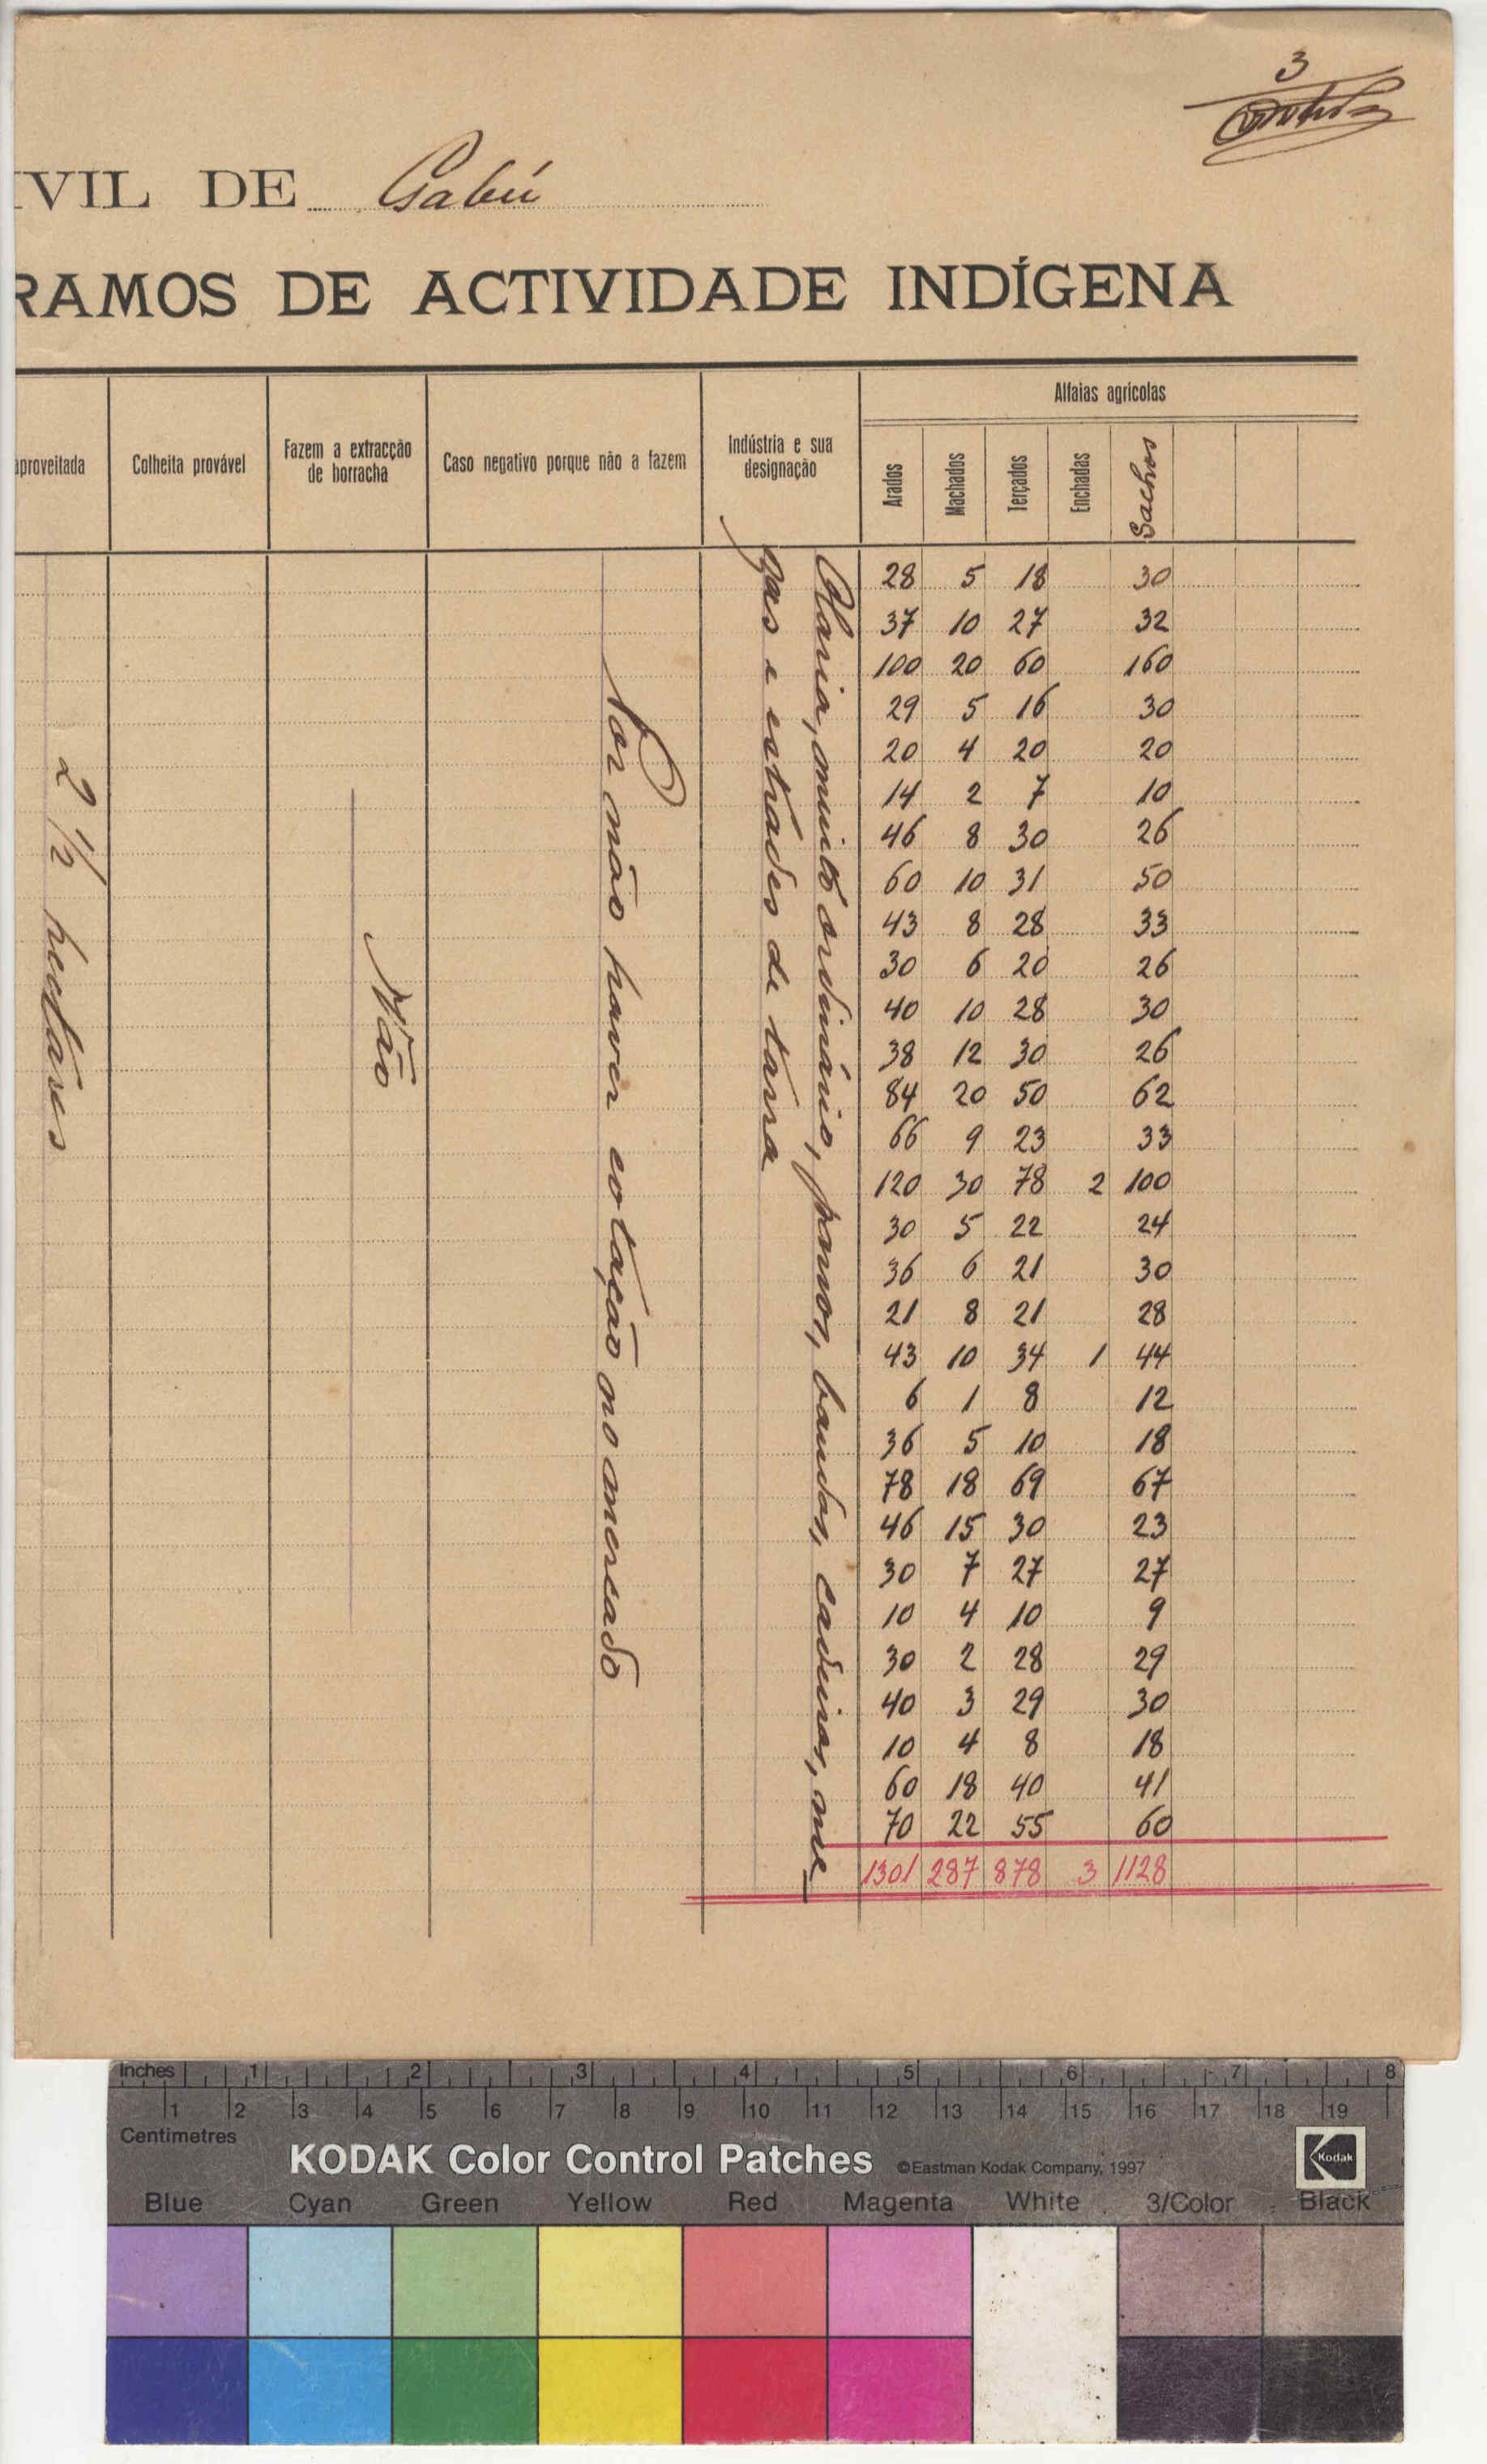 3
IVIL DE Gabú
RAMOS DE ACTIVIDADE INDÍGENA
aproveitada
Colheita provável
Fazem a extracção
de borracha
Caso negativo porque não a fazem
Indústria e sua
designação
Alfaias agrícolas
Arados
Machados
Terçados
Enchadas
Sachos
2 1/2 hectares
Não
Por não haver cotação no mercado
Olaria, muito ordinário, panos, bandas, cadeiras, me
zas e entrades de tarra
28 5 18 30
37 10 27 32
100 20 60 160
29 5 16 30
20 4 20 20
14 2 7 10
46 8 30 26
60 10 31 50
43 8 28 33
30 6 20 26
40 10 28 30
38 12 30 26
84 20 50 62
66 9 23 33
120 30 78 2 100
30 5 22 24
36 6 21 30
21 8 21 28
43 10 34 1 44
6 1 8 12
36 5 10 18
78 18 69 67
46 15 30 23
30 7 27 27
10 4 10 9
30 2 28 29
40 3 29 30
10 4 8 18
60 18 40 41
70 22 55 60
1301 287 878 3 1128
Inches 1 2 3 4 5 6 7 8
1 2 3 4 5 6 7 8 9 10 11 12 13 14 15 16 17 18 19
Centimetres
KODAK Color Control Patches ©Eastman Kodak Company, 1997 Kodak
Blue Cyan Green Yellow Red Magenta White 3/Color Black